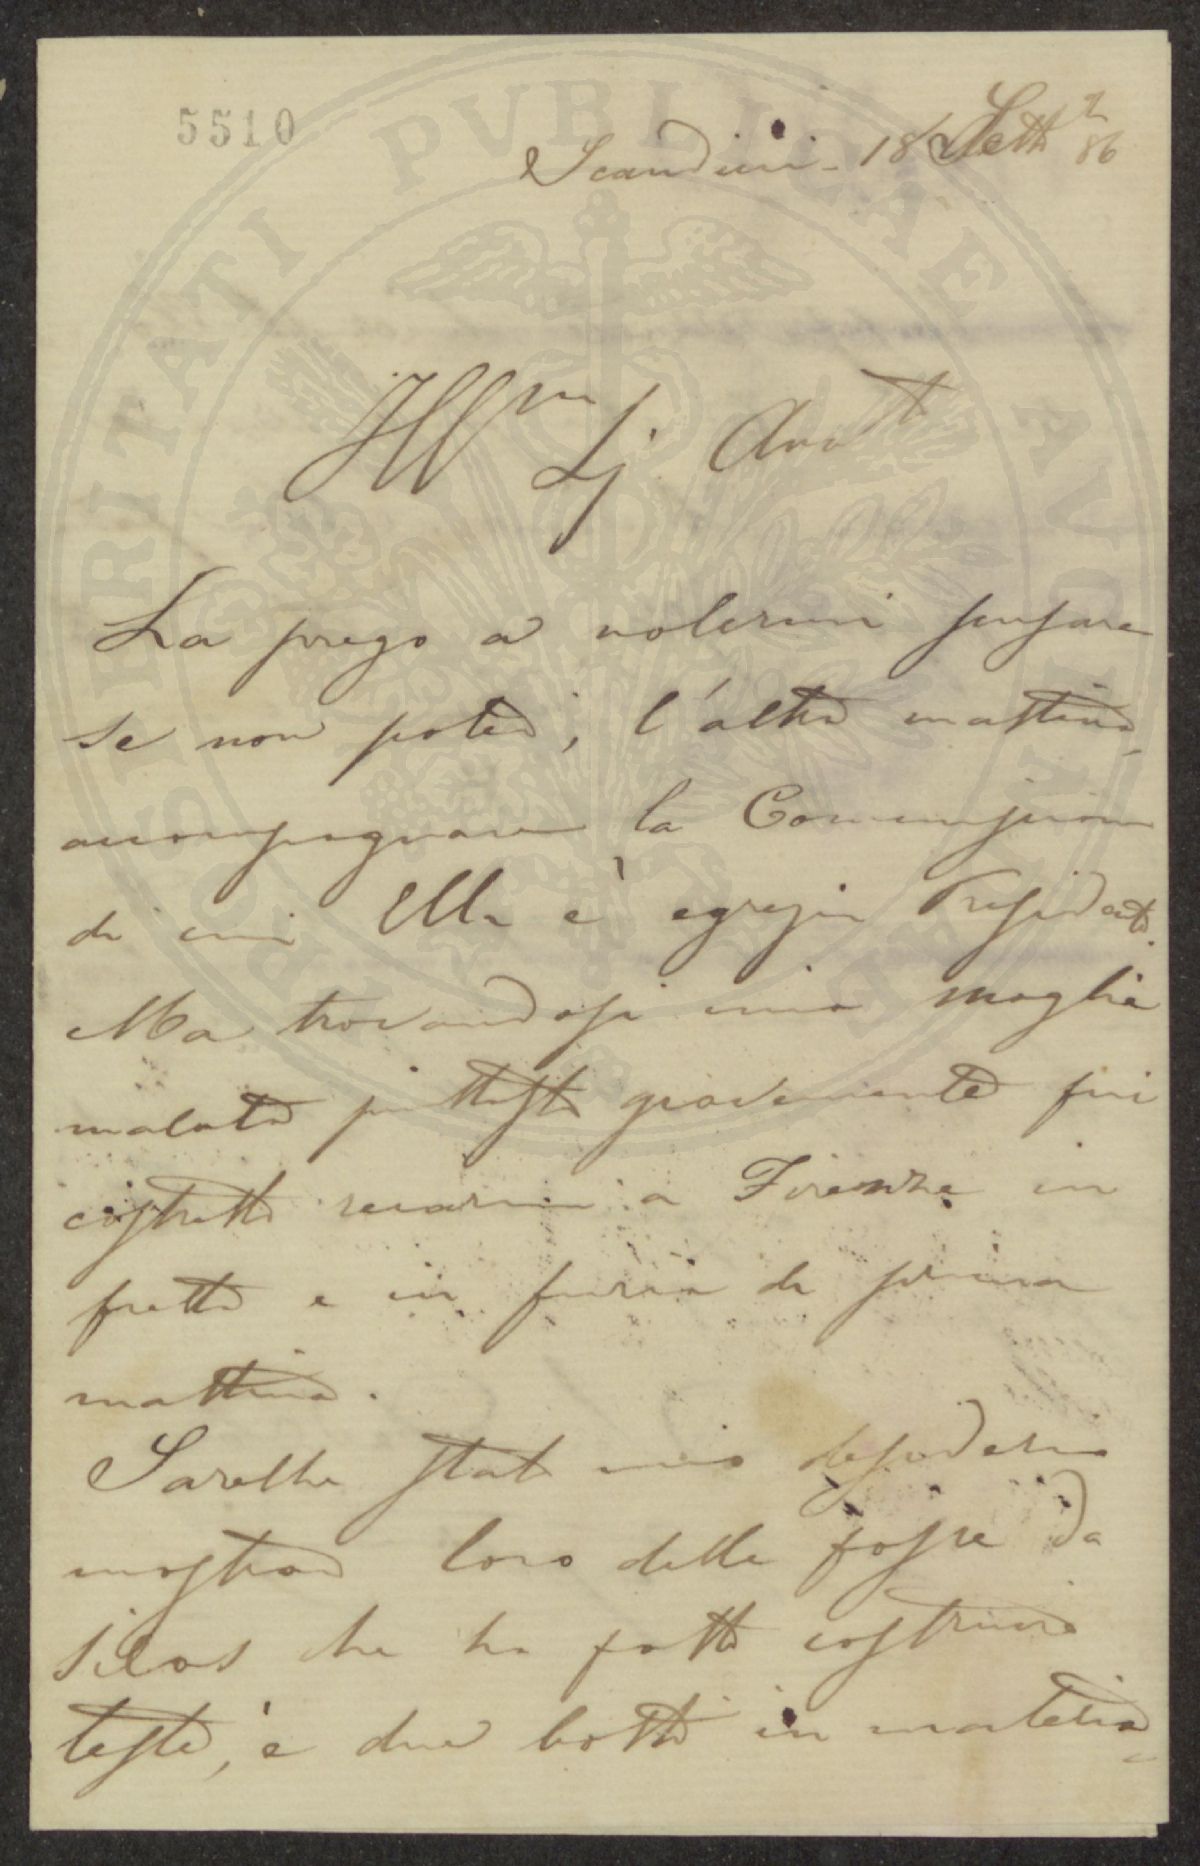 5510
Scandicci - 18 Sett.e 86
Ill.mo Sig. Avvt
La prego a volermi scusare
se non potei, l'altra mattina,
accompagnare la Commissione
di cui Ella è egregio Presidente.
Ma trovandosi mia moglie
malata piuttosto gravemente fui
costretto recarmi a Firenze in
fretta e in furia di prima
mattina.
Sarebbe stato mio desiderio
mostrare loro delle fosse da
silos che ho fatto costruire
testé, e due botti in materia
PROSPERITATI PVBLICAE AVGENDAE